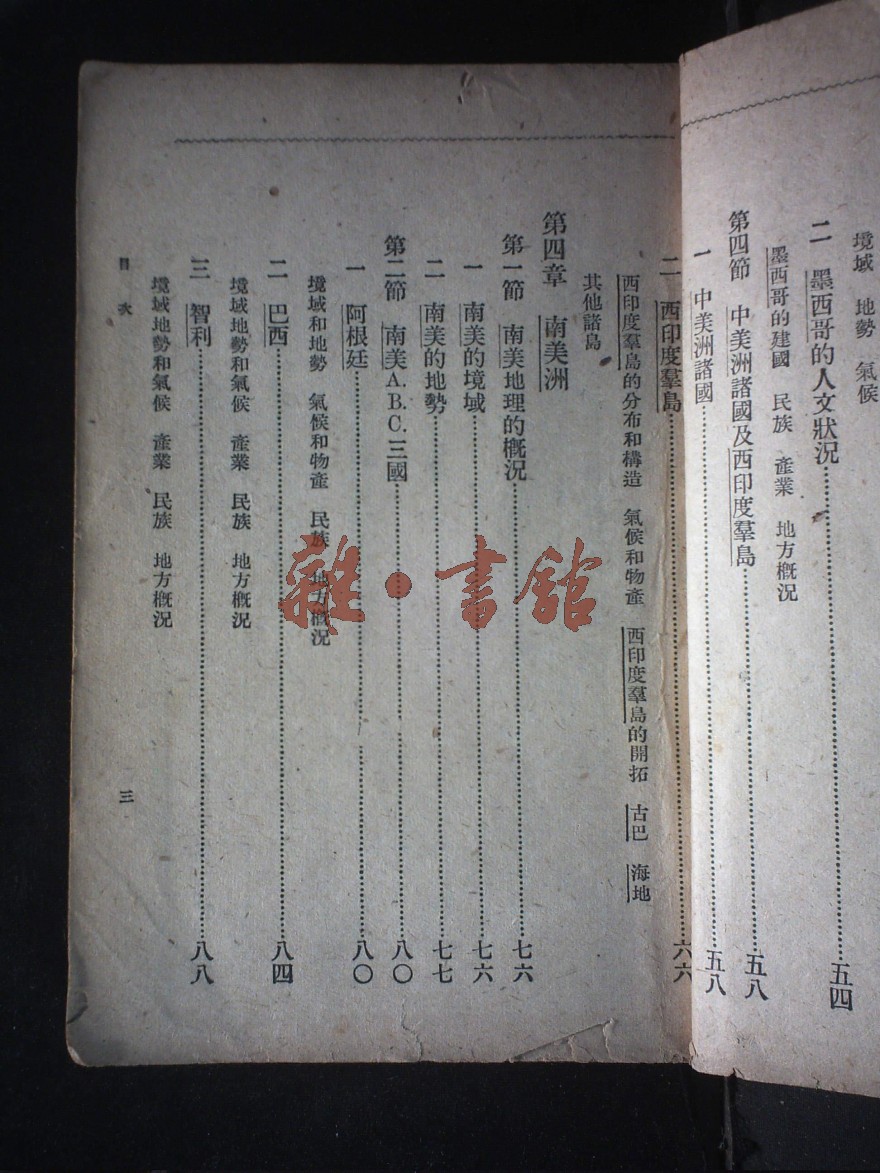 境域　地勢　氣候
二　墨西哥的人文狀況……五四
墨西哥的建國　民族　產業　地方概況
第四節　中美洲諸國及西印度羣島……五八
一　中美洲諸國……五八
二　西印度羣島……六六
西印度羣島的分布和構造　氣候和物產　西印度羣島的開拓　古巴　海地
其他諸島
第四章　南美洲
第一節　南美地理的概況……七六
一　南美的境域……七六
二　南美的地勢……七七
第二節　南美A.B.C.三國……八〇
一　阿根廷……八〇
境域和地勢　氣候和物產　民族　地方概況
二　巴西……八四
境域地勢和氣候　產業　民族　地方概況
三　智利……八八
境域地勢和氣候　產業　民族　地方概況
目次　三
雜·書舘